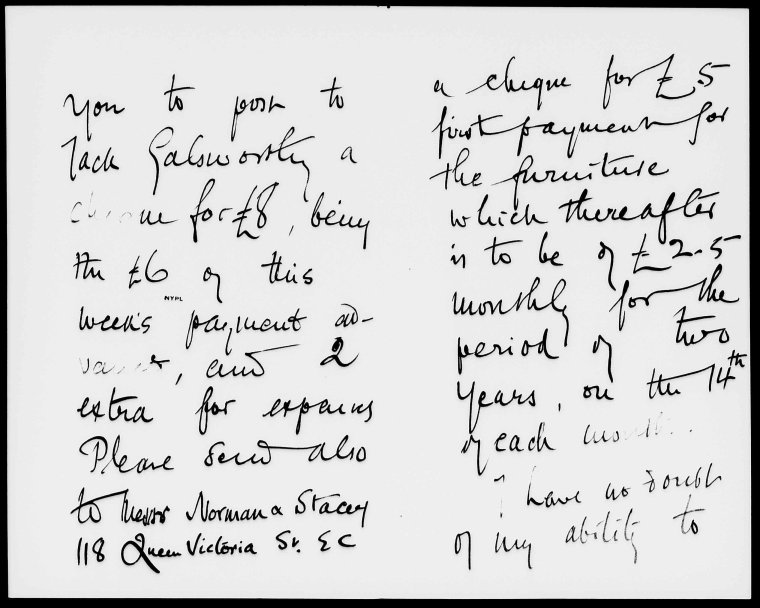 you to post to
Jack Galsworthy a
cheque for £8, being
the £6 of this
NYPL
week's payment ad-
vance, and 2
extra for expenses
Please send also
to Messrs Norman & Stacey
118 Queen Victoria St. E C
a cheque for £.5
first payment for
the furniture
which thereafter
is to be of £2.5
monthly for the
period of two
years, on the 14th
of each month.
I have no doubt
of my ability to